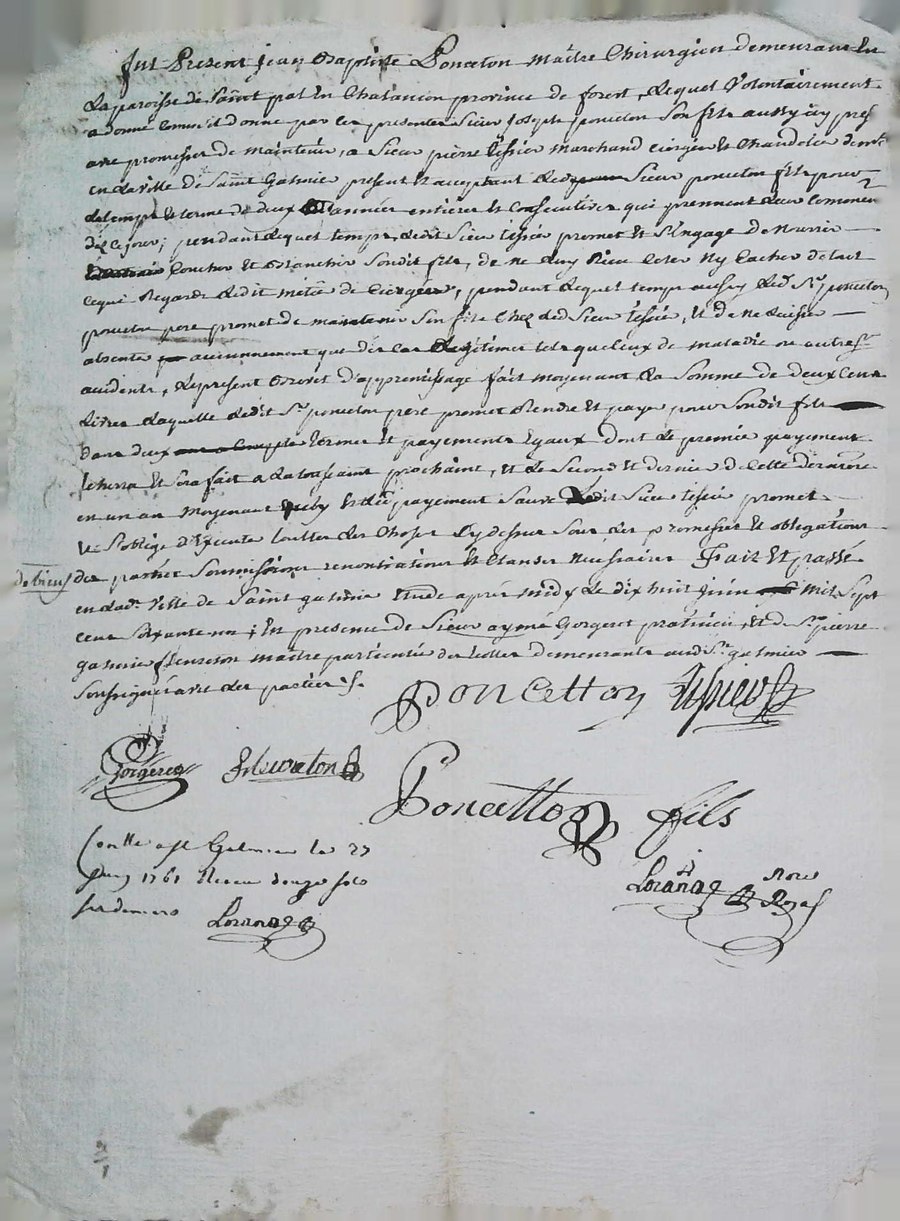 fut Present jean Baptiste Ponceton maître Chirurgien demeurant En
La paroisse de Saint pal En Chalancon province de forest, Lequel Volontairement
a donné comme il donne par ces presentes Sieur joseph ponceton Son fils aussy icy pres
avec promesse de maintenir, a Sieur pierre tessier marchand ciergier et Chandelier dem.t
en la ville de Saint Galmier present et acceptant Led Sieur ponceton fils pour
le temps et terme de deux années entières et Consecutives qui prennent Leur Commen
dès ce jour, pendant Lequel temps Ledit Sieur tessier promet et s'Engage de Nourrir
Coucher et Blanchir Sondit fils, de ne Luy Rien Celer Ny Cacher de tout
ce qui Regarde Ledit métier de Ciergier, pendant Lequel temps aussy Led Sr ponceton
ponceton pere promet de maintenir Son fils Chez Led Sieur tessier, et de ne Laisser
absenter aucunnement que dès Cas Legitimes tels que Ceux de maladie ou autres
accidents, Le present Brevet d'apprentissage fait moyenant La Somme de deux Cent
Livres Laquelle Ledit Sr ponceton pere promet Rendre et payer pour Sondit fils
Dans deux termes et payements Egaux dont Le premier payement
Echerra et Sera fait a La toussaint prochaine, et Le Second et dernier de Cette derniere
en un an moyenant payement Ledit Sieur tessier promet
et S'oblige d'Executer touttes Les Choses Cy dessus Sous Les promesses et obligations
de biens des parties Soumissions renontiations et Clauses Necessaires Fait et passé
en Lad. Ville de Saint galmier Etude après midy Le dix huit juin mil Sept
Cent Soixante un, En presence de Sieur aymé Gorgeret praticien, et de Sr pierre
galmier fleureton maître particulier des demeurants aud St galmier
Soussignés avec Les parties.
Poncetton Tessier
Gorgeret fleureton
Poncetton fils
Con.lle a St Galmier le 27
juin 1761 Receu douze sols
six deniers